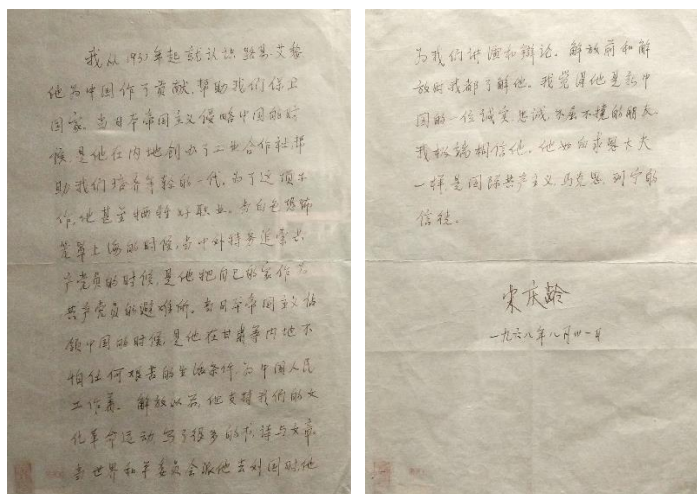 我从1931年起就认识路易.艾黎
他为中国作了贡献,帮助我们保卫
国家。当日本帝国主义侵略中国的时
候,是他在内地创办了工业合作社帮
助我们培养年轻的一代。为了这项工
作,他甚至牺牲好职业。当白色恐怖
笼罩上海的时候,当中外特务追索共
产党员的时候,是他把自己的家作为
共产党员的避难所。当日本帝国主义占
领中国的时候,是他在甘肃等内地不
怕任何艰苦的生活条件,为中国人民
工作着。解放以后,他支持我们的文
化革命运动,写了很多的诗与文章。
当世界和平委员会派他去别国时,他
为我们讲演和辩论。解放前和解
放时我都了解他。我觉得他是新中
国的一位诚实、忠诚、不屈不挠的朋友。
我极端相信他。他如白求恩大夫
一样是国际共产主义、马克思、列宁的
信徒。
宋庆龄
一九六八年八月卅一日